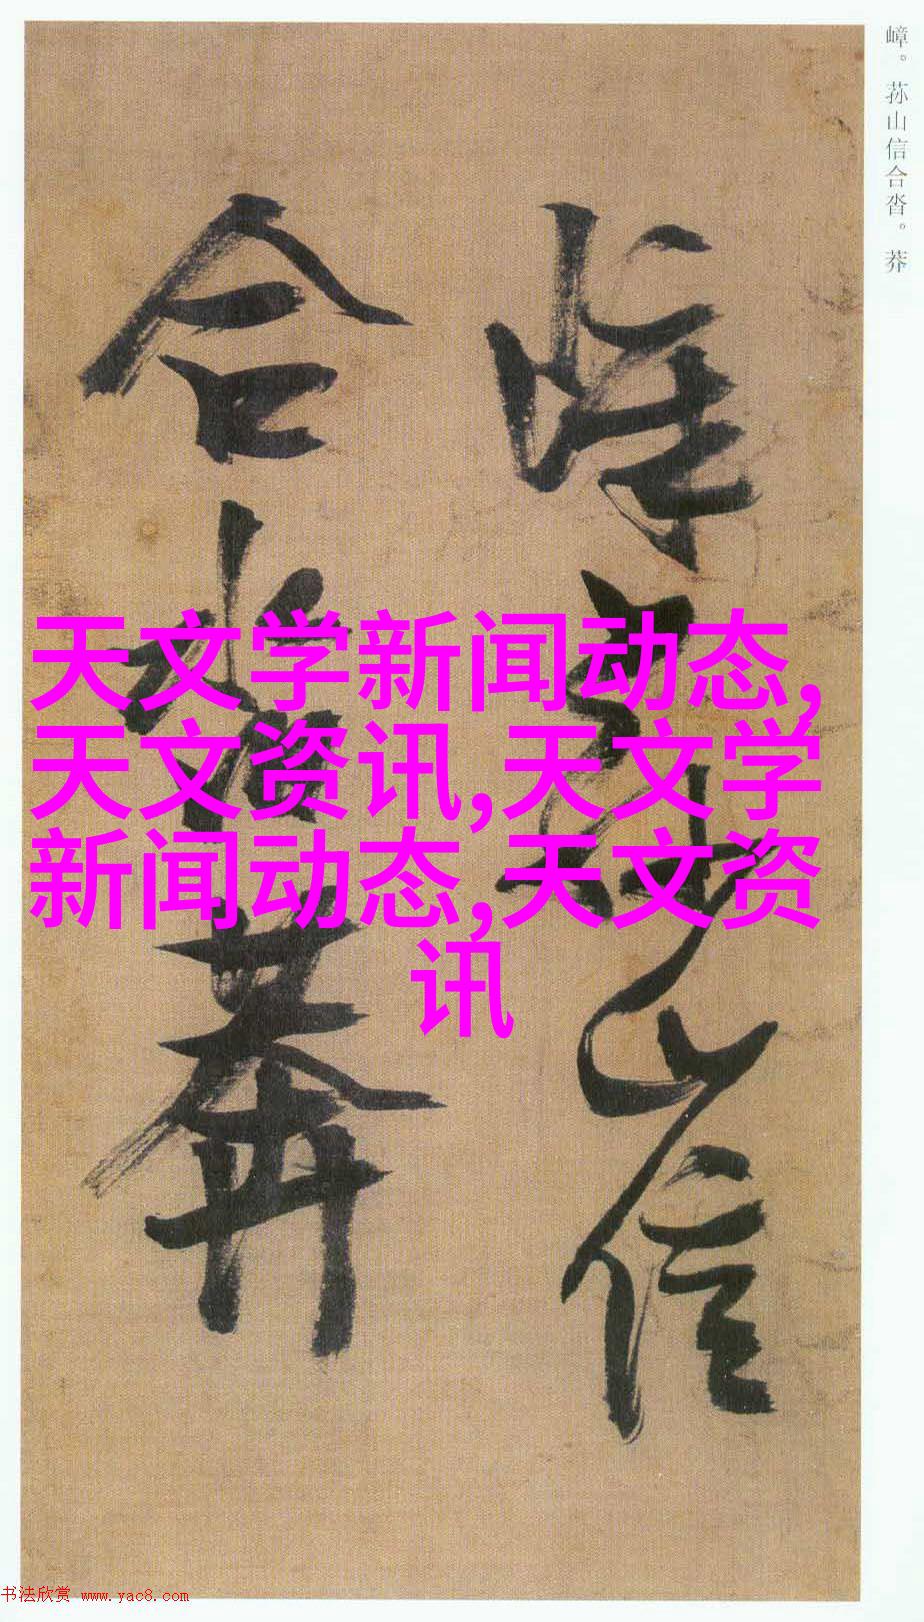 嶂。荪山信合沓。莽
嶂荪山信
合沓莽
天文学新闻动态,
天文资讯,天文学
新闻动态,天文资
讯
书法欣赏 www.yac8.com